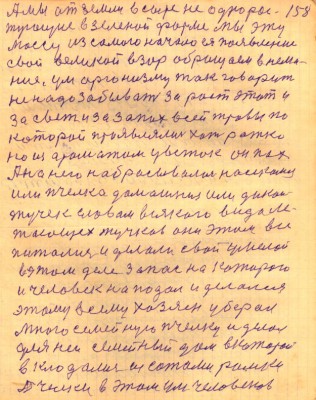 А мы от земли всыне не однорос- 158
тующие взеленой форме мы эту
массу из самого начала ея появление
свой великой взор обращаем внема-
ние, ум организму так говорит
не надо забывать за рост этот и
за свет и за запах всей травы по
которой проявлялись хоть редко
но из ароматом цветок он пах
А на него набрасывалося насекомая
или пчелка домашняя или дикая
жучек словам всякого вида ле-
тающех жучков они этом все
питалися и делали свой умелой
вэтом деле запас на которого
и человек нападал и делался
этому всему хозяен убирал
много семейную пчелку и делал
для ней семейный дом вкоторой
вкладалися сотами рамки
Пчелки вэтом ум человеков